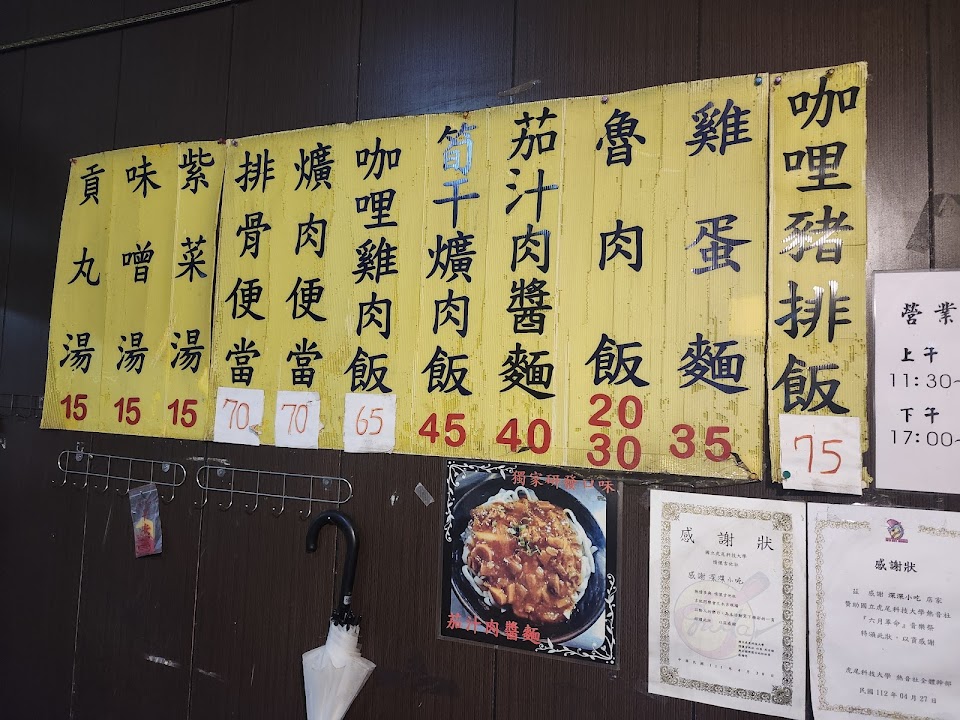 咖哩豬排飯
75
雞蛋麵
35
魯肉飯
20
30
茄汁肉醬麵
40
筍干爌肉飯
45
咖哩雞肉飯
65
爌肉便當
70
排骨便當
70
紫菜湯
15
味噌湯
15
貢丸湯
15
營業
上午
11:30~
下午
17:00~
茄汁肉醬麵
感謝狀
國立虎尾科技大學
感謝 深深小吃
感謝狀
茲 感謝 深深小吃 店家
贊助國立虎尾科技大學熱音社
『六月革命』音樂祭
特頒此狀,以資感謝
虎尾科技大學 熱音社全體幹部
民國 112 年 04 月 27 日